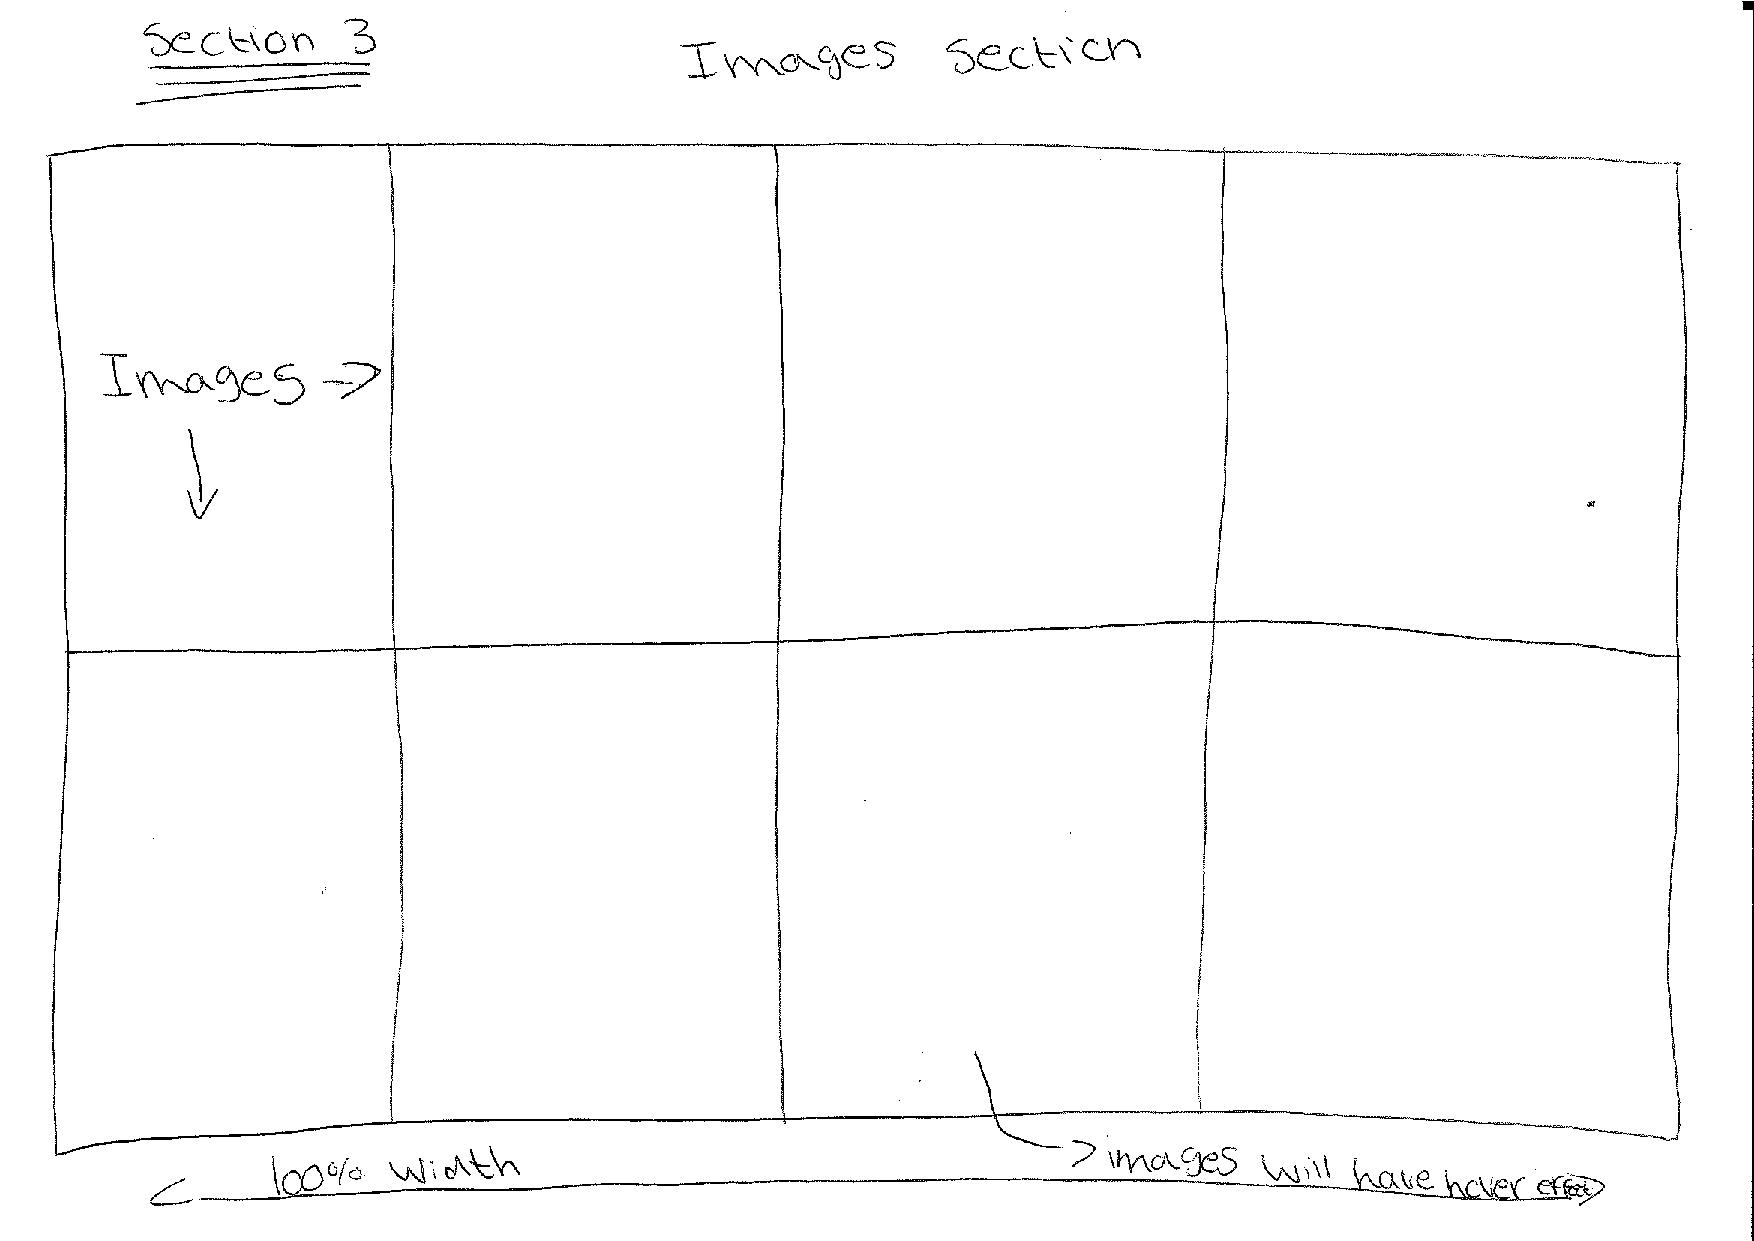 Section 3
Images section
Images ->
100% width
> images will have hover effect